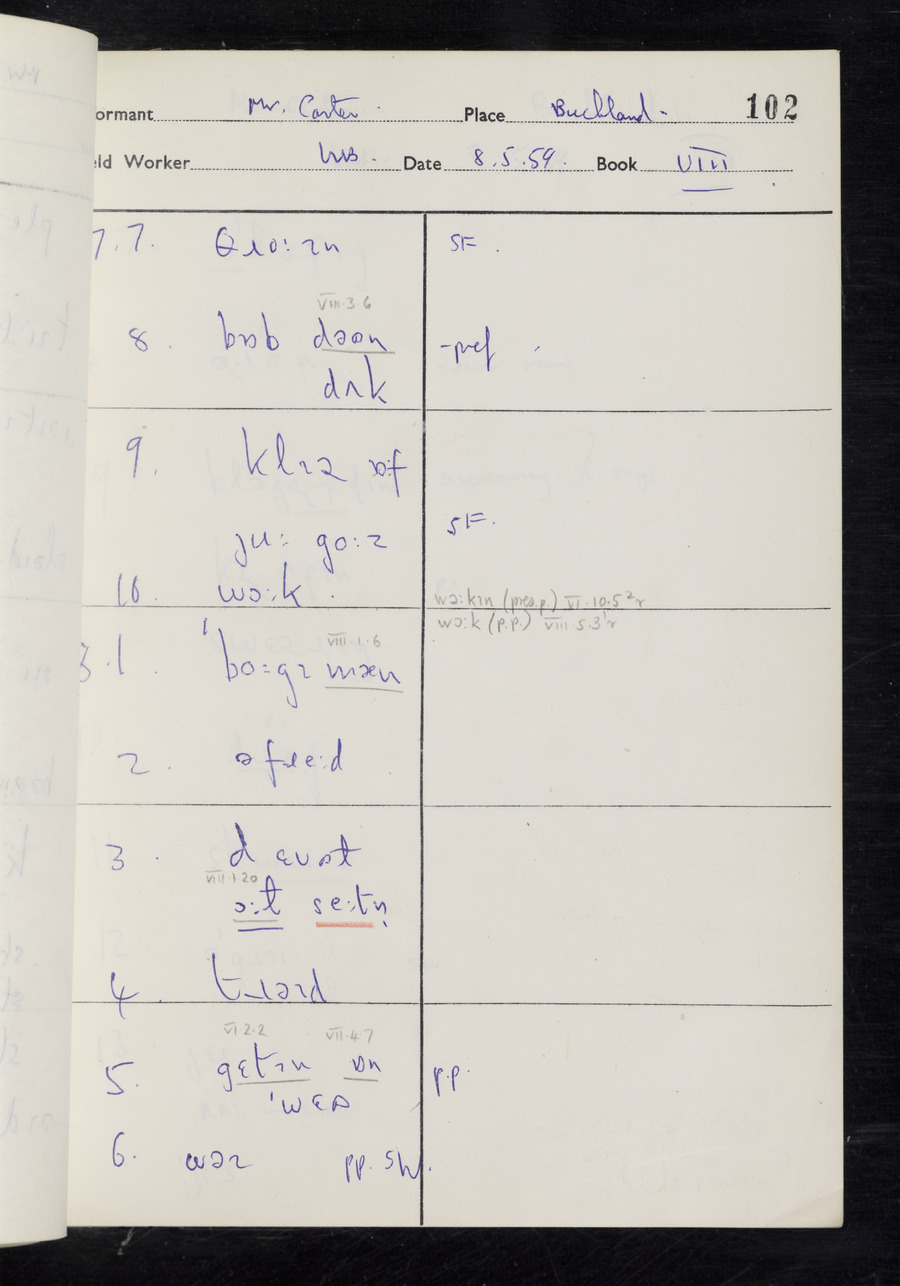 ormant Mr. Carter. Place Buckland- 102
eld Worker WB. Date 8.5.59. Book VIII
7.7. θɹoːɪn SF.
VIII.3.6
8. bɒb dəʊn -pref
dʌk
9. klɪə ɒf
juː goːz SF.
10. wəːk. wəːkɪn (pres.p.) VI.10.5²r
wəːk (p.p.) VIII.5.3¹r
VIII.1.6
3.1. ˈboːgɪ mæn
2. əfɪeːd
3. d ɛʊət
VIII.1.20
ɔːɫ seːtn̩
4. tɪəɪd
VI.2.2 VII.4.7
5. gɛtɪn ɒn p.p.
ˈwɛə
6. wəɪ pp. SW.